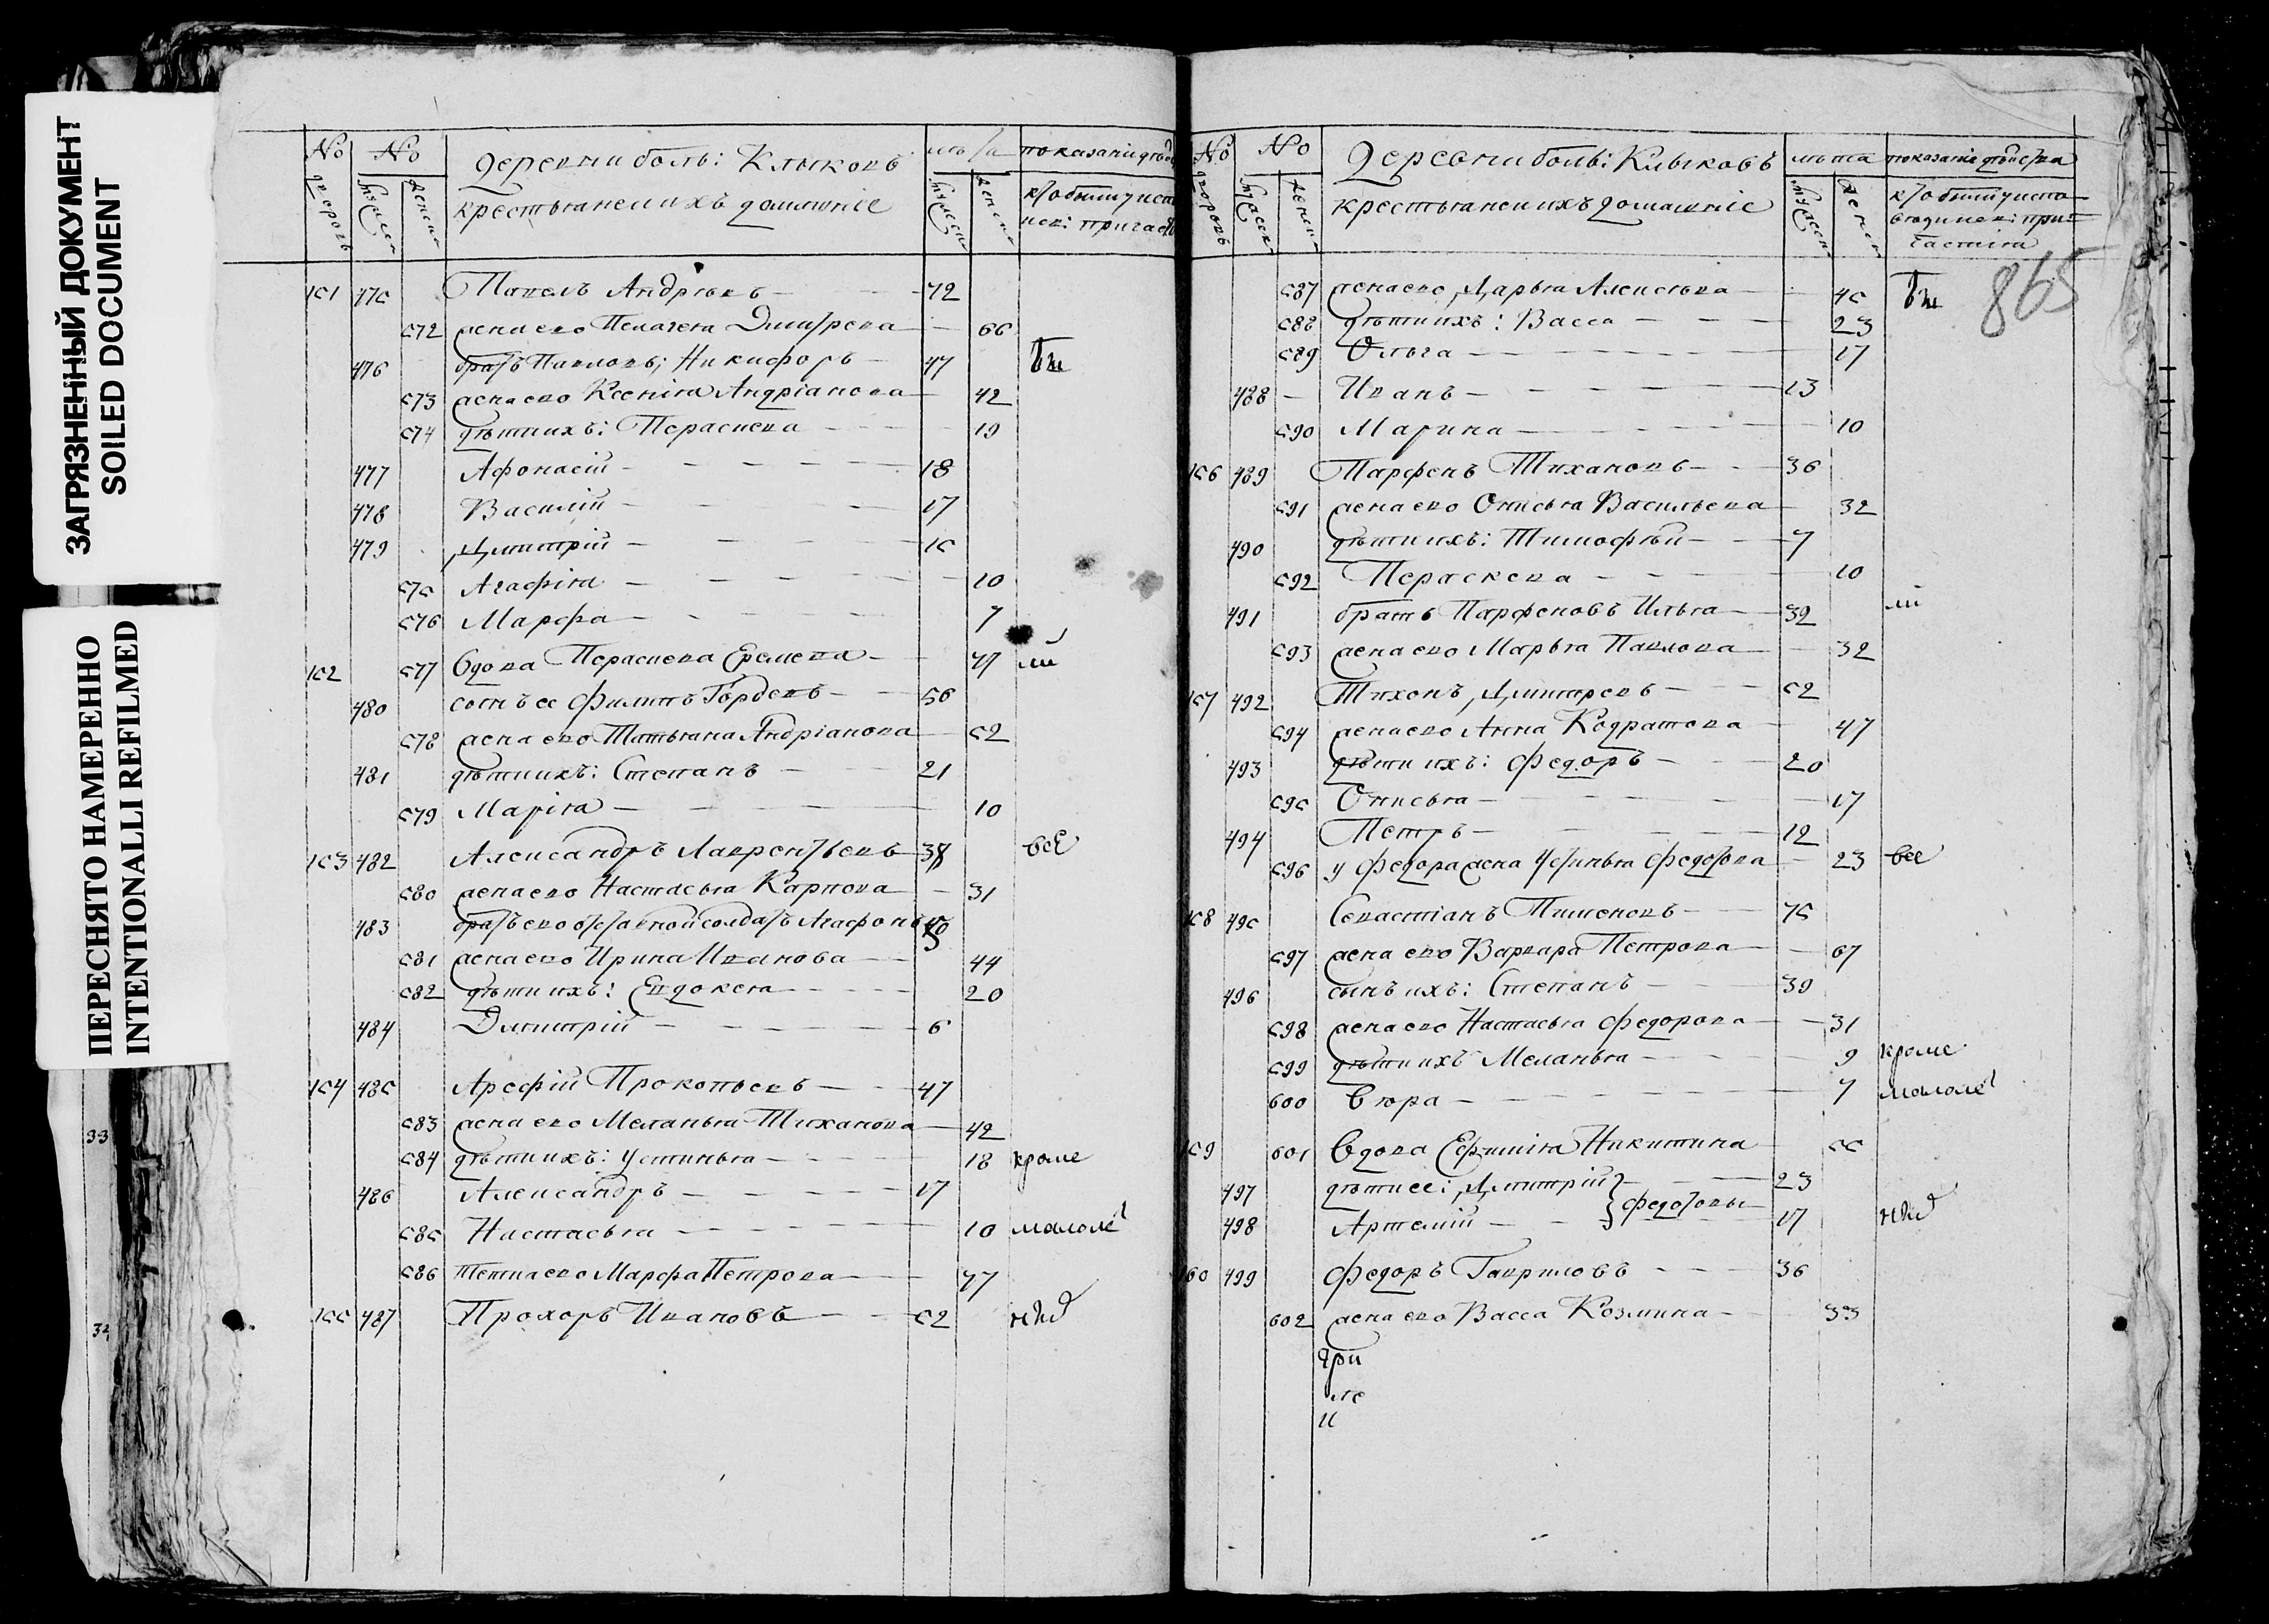 ЗАГРЯЗНЕННЫЙ ДОКУМЕНТ
SOILED DOCUMENT
ПЕРЕСНЯТО НАМЕРЕННО
INTENTIONALLI REFILMED
33
34
№ дворовъ № мужеска женска Деревни боль: Клыковъ крестьяне и ихъ домашніе лѣта мужеска женска
151 475 Павелъ Андрѣевъ 72
572 жена ево Пелагея Дмитрева 66
476 братъ Павловъ; Никифоръ 47
573 жена ево Ксенія Андріанова 42
574 дѣти ихъ: Пераскева 19
477 Афонасій 18
478 Василій 17
479 Дмитрій 15
575 Агафія 10
576 Марфа 7
152 577 вдова Пераскева Еремѣева 77
480 сынъ ее Филипъ Гордѣевъ 56
578 жена ево Татьяна Андріанова 52
481 дѣти ихъ: Степанъ 21
579 Марія 10
153 482 Александръ Лаврентьевъ все
580 жена ево Настасья Карпова 31
483 братъ ево отставной солдатъ Агафонъ
581 жена ево Ирина Иванова 44
582 дѣти ихъ: Евдокея 20
484 Димитрій 6
154 485 Арефій Прокопьевъ 47
583 жена ево Меланья Тиханова 42
584 дѣти ихъ: Устинья 18 кроме
486 Александръ 17
585 Настасья 10 малолѣ
586 тетка ево Марфа Петрова 77
155 487 Прохоръ Ивановъ 52
865
№ дворовъ № мужеска женска Деревни боль: Клыковъ крестьяне и ихъ домашніе лѣта мужеска женска показаніе дѣйства
587 жена ево Дарья Алексѣева 45
588 дѣти ихъ: Васса 23
589 Ольга 17
488 Иванъ 13
590 Марина 10
156 489 Парфенъ Тихановъ 36
591 жена ево Онисья Васильева 32
490 дѣти ихъ: Тимофѣй 7
592 Пераскева 10
491 братъ Парфеновъ Илья 32
593 жена ево Марья Павлова 32
157 492 Тихонъ Дмитревъ 52
594 жена ево Анна Кодратова 47
493 дѣти ихъ: Федоръ 20
595 Онисья 17
494 Петръ 12
596 у Федора жена Устинья Федотова 23 все
158 495 Севастіанъ Тимоновъ 75
597 жена ево Варвара Петрова 67
496 сынъ ихъ: Степанъ 39
598 жена ево Настасья Федорова 31
599 дѣти ихъ Меланья 9 кроме
600 Вера 7 малолѣ
159 601 вдова Ефимія Никитина 55
497 дѣти ее: Дмитрій } Федотовы 23
498 Артемій 17
160 499 Федоръ Гавриловъ 36
602 жена ево Васса Козмина 33
гри
ле
и